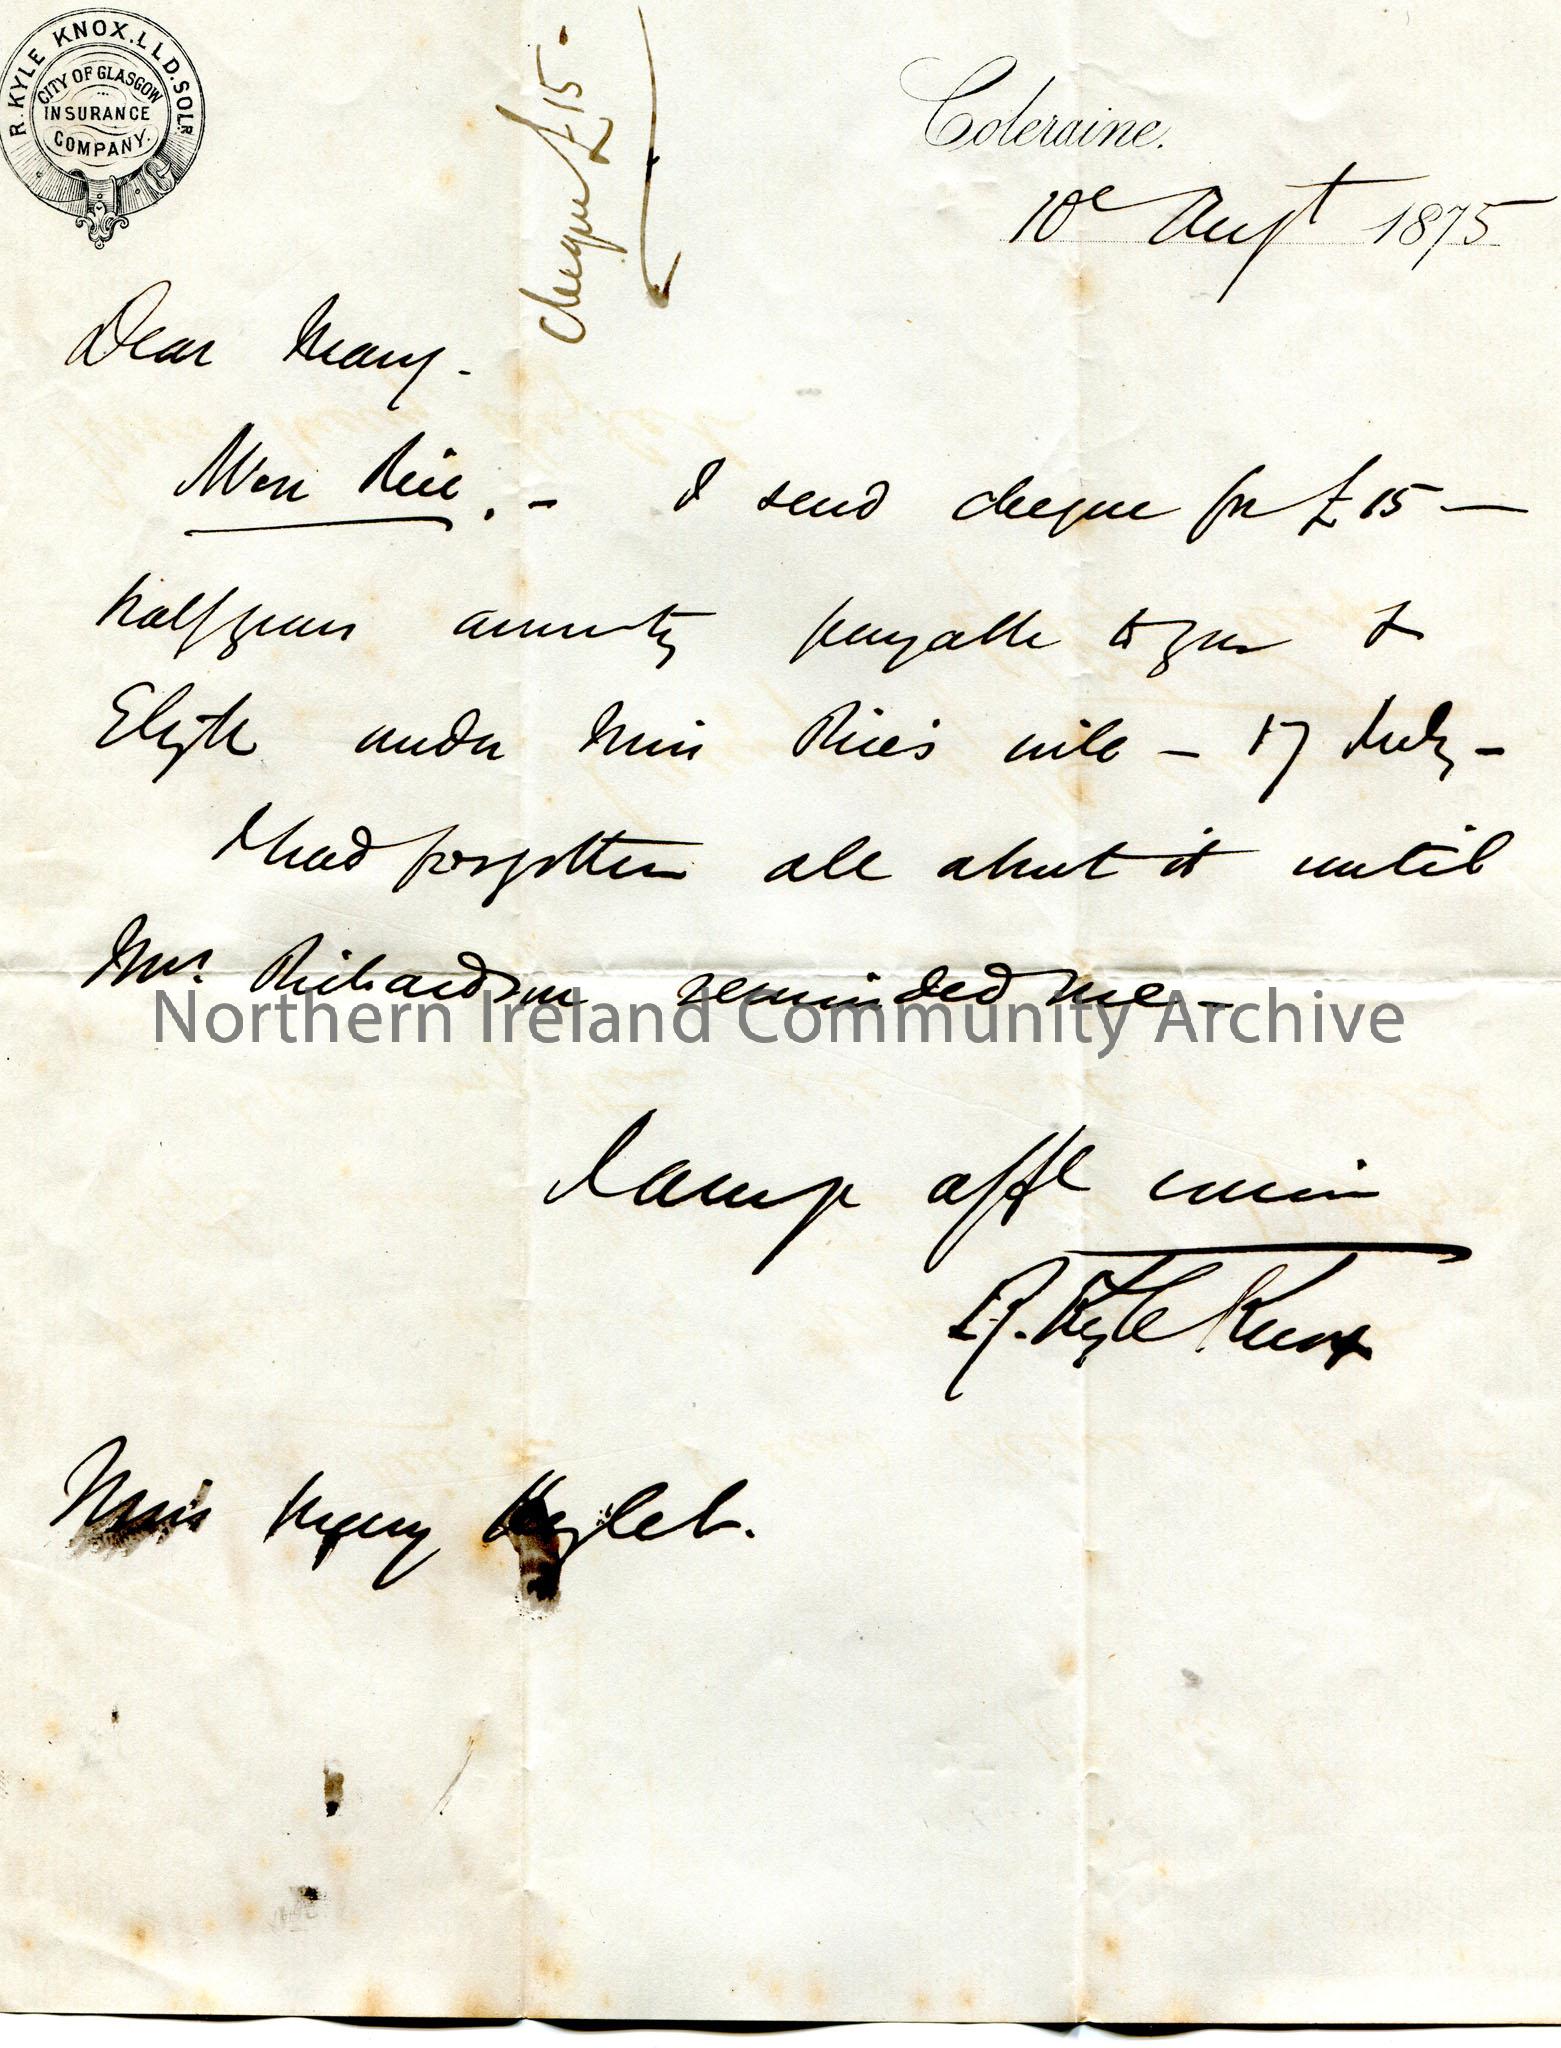 R. KYLE KNOX. LLD. SOLR.
CITY OF GLASGOW
INSURANCE
COMPANY.
cheque £15-
Coleraine.
10 Augt 1875
Dear Mary -
Rice. - I send cheque for £15 -
half years annuity payable to you &
under Miss Rice's will - 17 July -
I had forgotten all about it until
Mrs. Richardson reminded me -
I am yr afft cousin
R. Kyle Knox
Miss Mary
Northern Ireland Community Archive